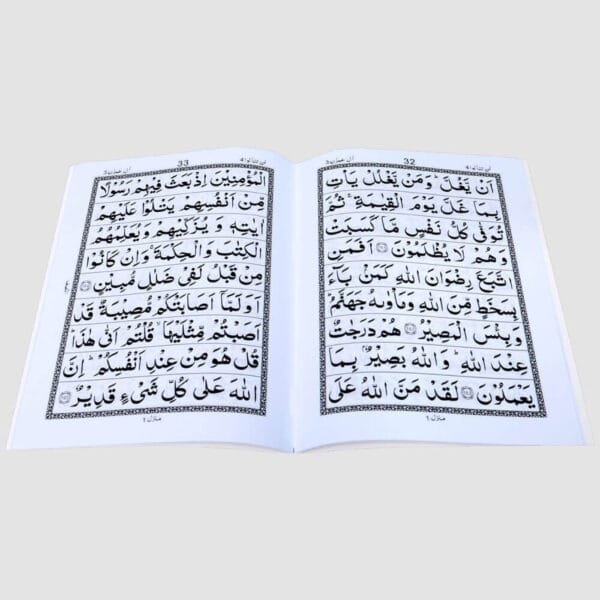 لن تنالوا ٤ 32 اٰل عمرٰن ٣
اَنْ يَّغُلَّ ؕ وَمَنْ يَّغْلُلْ يَاْتِ
بِمَا غَلَّ يَوْمَ الْقِيٰمَةِ ۚ ثُمَّ
تُوَفّٰى كُلُّ نَفْسٍ مَّا كَسَبَتْ
وَهُمْ لَا يُظْلَمُوْنَ ۝ اَفَمَنِ
اتَّبَعَ رِضْوَانَ اللّٰهِ كَمَنْۢ بَآءَ
بِسَخَطٍ مِّنَ اللّٰهِ وَمَاْوٰىهُ جَهَنَّمُ ؕ
وَبِئْسَ الْمَصِيْرُ ۝ هُمْ دَرَجٰتٌ
عِنْدَ اللّٰهِ ؕ وَاللّٰهُ بَصِيْرٌۢ بِمَا
يَعْمَلُوْنَ ۝ لَقَدْ مَنَّ اللّٰهُ عَلَى
منزل ١
لن تنالوا ٤ 33 اٰل عمرٰن ٣
الْمُؤْمِنِيْنَ اِذْ بَعَثَ فِيْهِمْ رَسُوْلًا
مِّنْ اَنْفُسِهِمْ يَتْلُوْا عَلَيْهِمْ
اٰيٰتِهٖ وَ يُزَكِّيْهِمْ وَ يُعَلِّمُهُمُ
الْكِتٰبَ وَ الْحِكْمَةَ ۚ وَاِنْ كَانُوْا
مِنْ قَبْلُ لَفِيْ ضَلٰلٍ مُّبِيْنٍ ۝
اَوَ لَمَّاۤ اَصَابَتْكُمْ مُّصِيْبَةٌ قَدْ
اَصَبْتُمْ مِّثْلَيْهَا ۙ قُلْتُمْ اَنّٰى هٰذَا ؕ
قُلْ هُوَ مِنْ عِنْدِ اَنْفُسِكُمْ ؕ اِنَّ
اللّٰهَ عَلٰى كُلِّ شَيْءٍ قَدِيْرٌ ۝
منزل ١